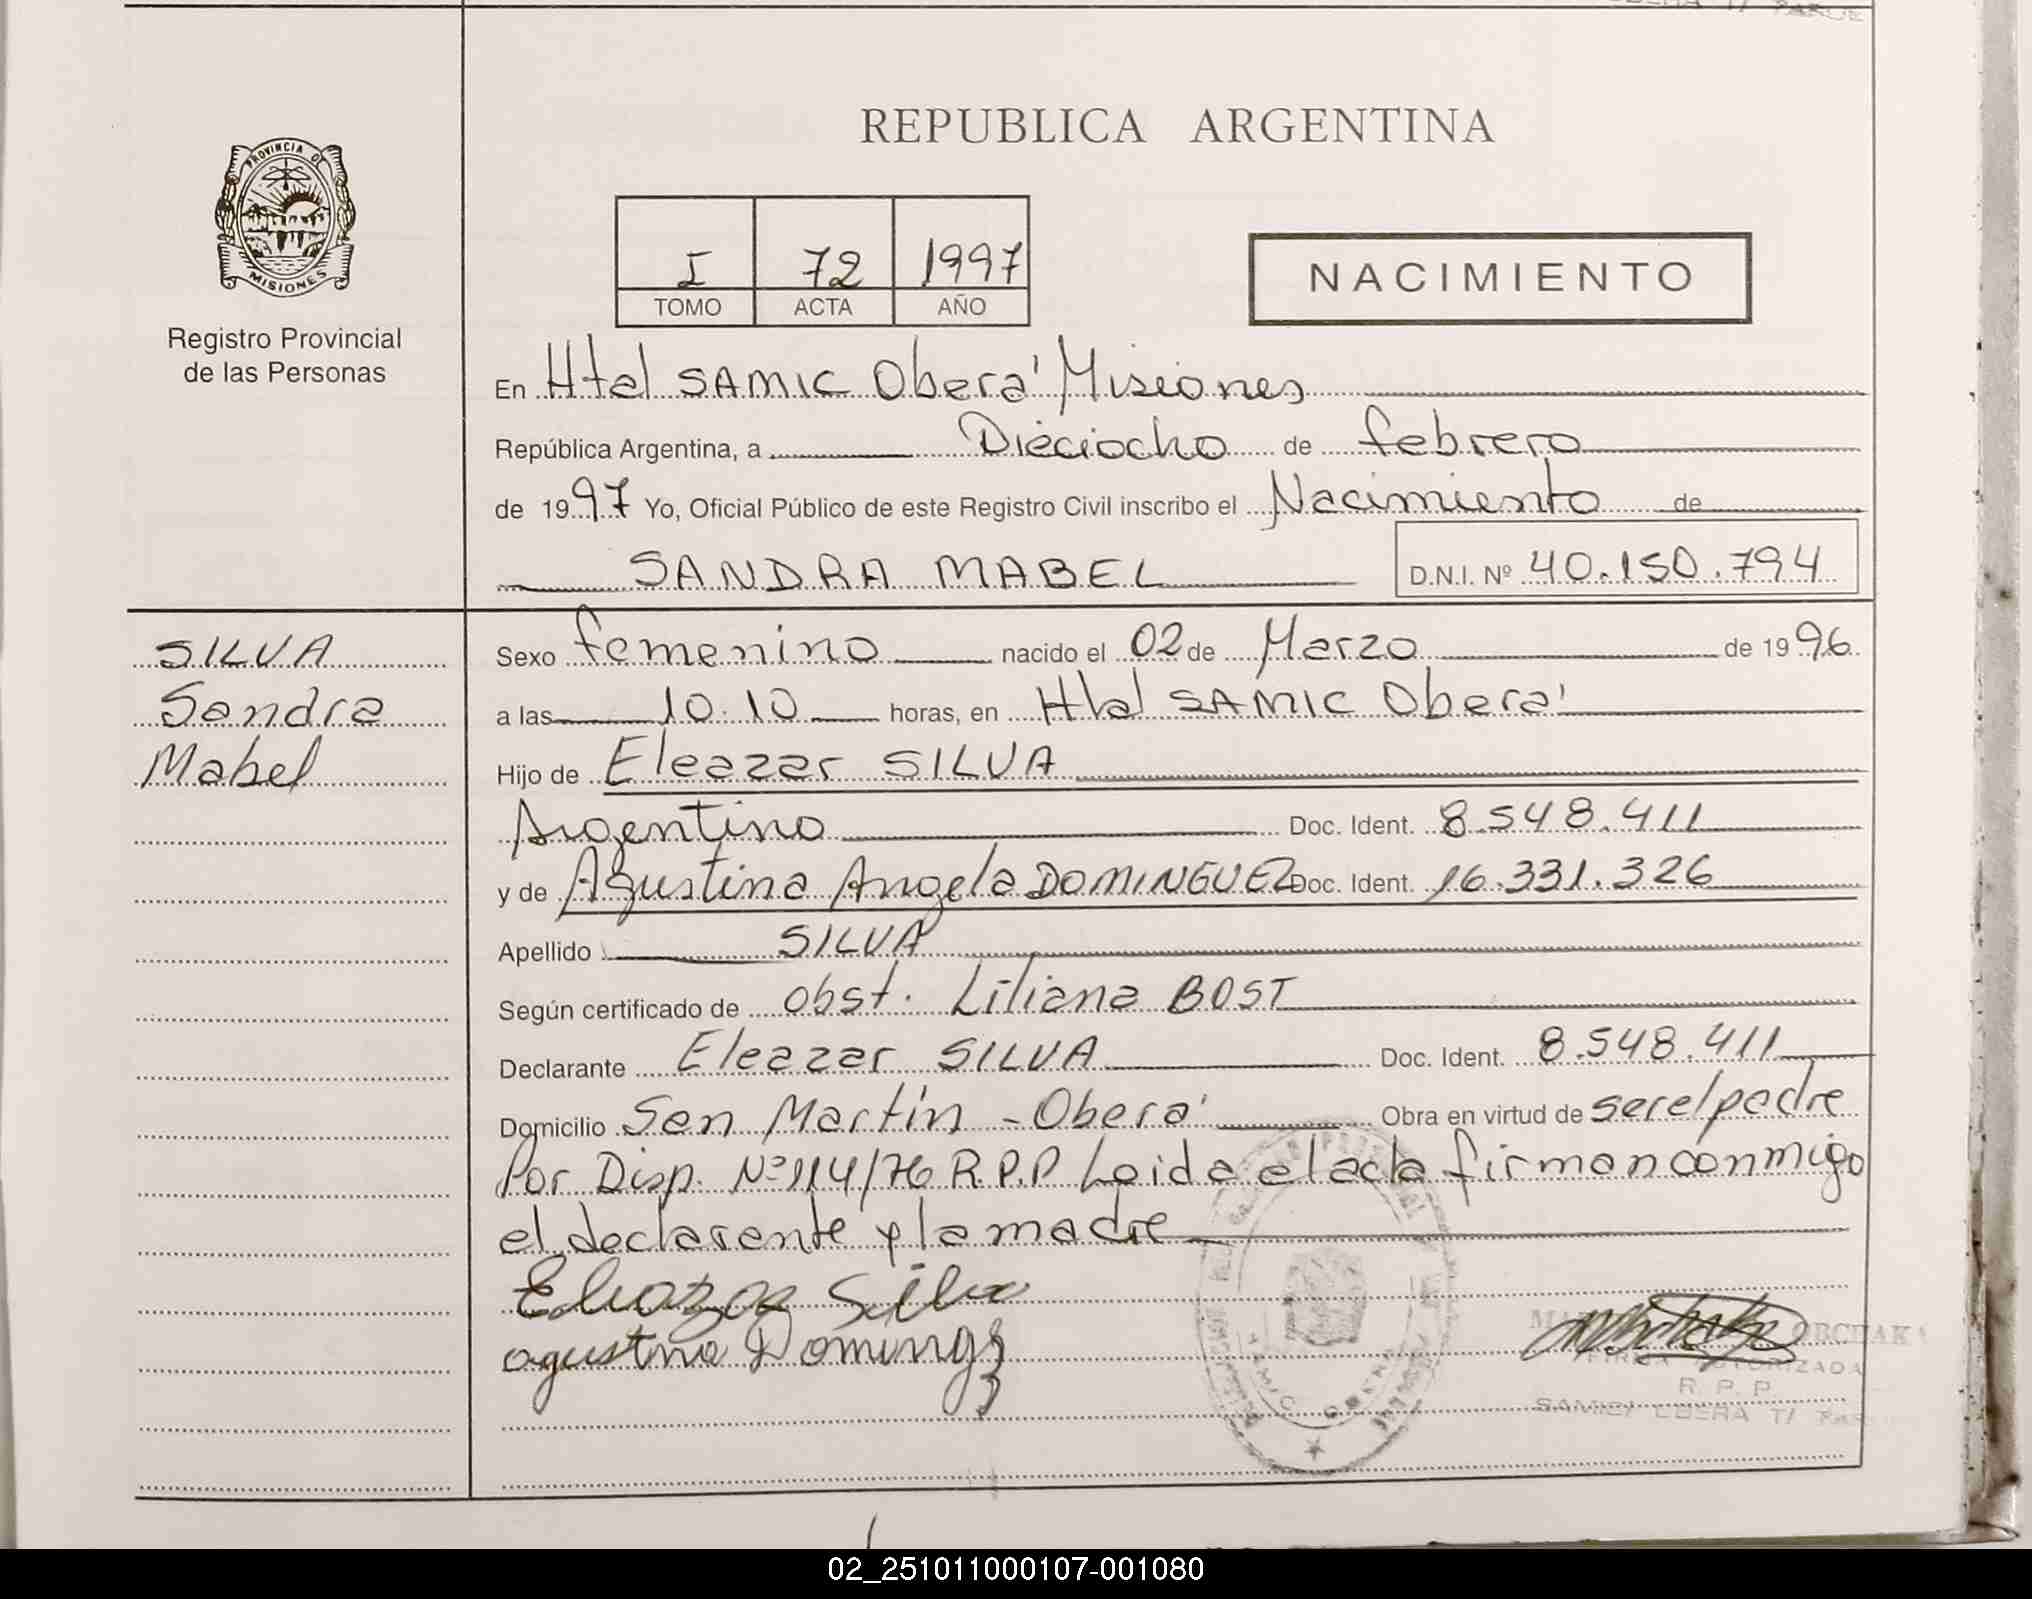 REPUBLICA ARGENTINA
PROVINCIA DE
MISIONES
Registro Provincial
de las Personas
I 72 1997
TOMO ACTA AÑO
NACIMIENTO
En Htal SAMIC Oberá Misiones
República Argentina, a Dieciocho de febrero
de 1997 Yo, Oficial Público de este Registro Civil inscribo el Nacimiento de
SANDRA MABEL D.N.I. Nº 40.150.794
SILVA
Sandra
Mabel
Sexo femenino nacido el 02 de Marzo de 1996
a las 10.10 horas, en Htal SAMIC Oberá
Hijo de Eleazar SILVA
Argentino Doc. Ident. 8.548.411
y de Agustina Angela DOMINGUEZ Doc. Ident. 16.331.326
Apellido SILVA
Según certificado de Obst. Liliana BOST
Declarante Eleazar SILVA Doc. Ident. 8.548.411
Domicilio San Martín - Oberá Obra en virtud de ser el padre
Por Disp. Nº 114/76 R.P.P Leida el acta firman conmigo
el declarante y la madre
Eleazar Silva
agustina Doming
FIRMA AUTORIZADA
R. P. P.
SAMIC/ OBERA T/
02_251011000107-001080